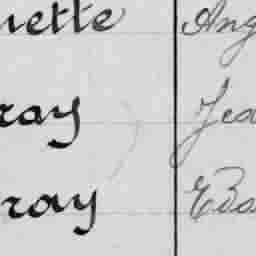 nette Ang
ray Jea
ray Eva